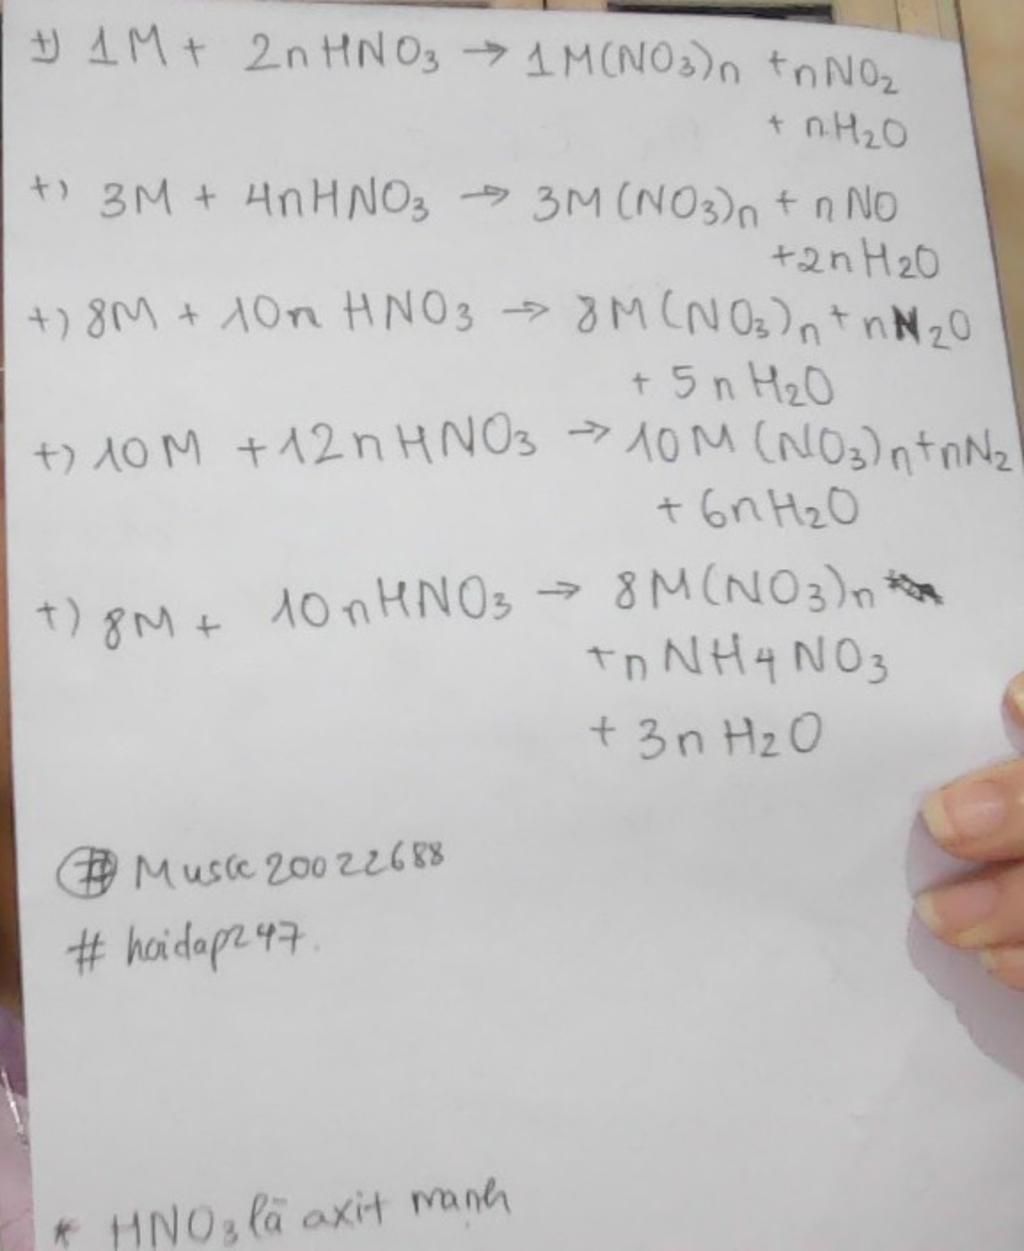 +) 1M + 2nHNO3 → 1M(NO3)n + nNO2
+ nH2O
+) 3M + 4nHNO3 → 3M(NO3)n + nNO
+2nH2O
+) 8M + 10n HNO3 → 8M(NO3)n + nN2O
+ 5nH2O
+) 10M + 12nHNO3 → 10M(NO3)n + nN2
+ 6nH2O
+) 8M + 10nHNO3 → 8M(NO3)n
+ n NH4NO3
+ 3nH2O
# Musce20022688
# hoidap247.
* HNO3 là axit mạnh